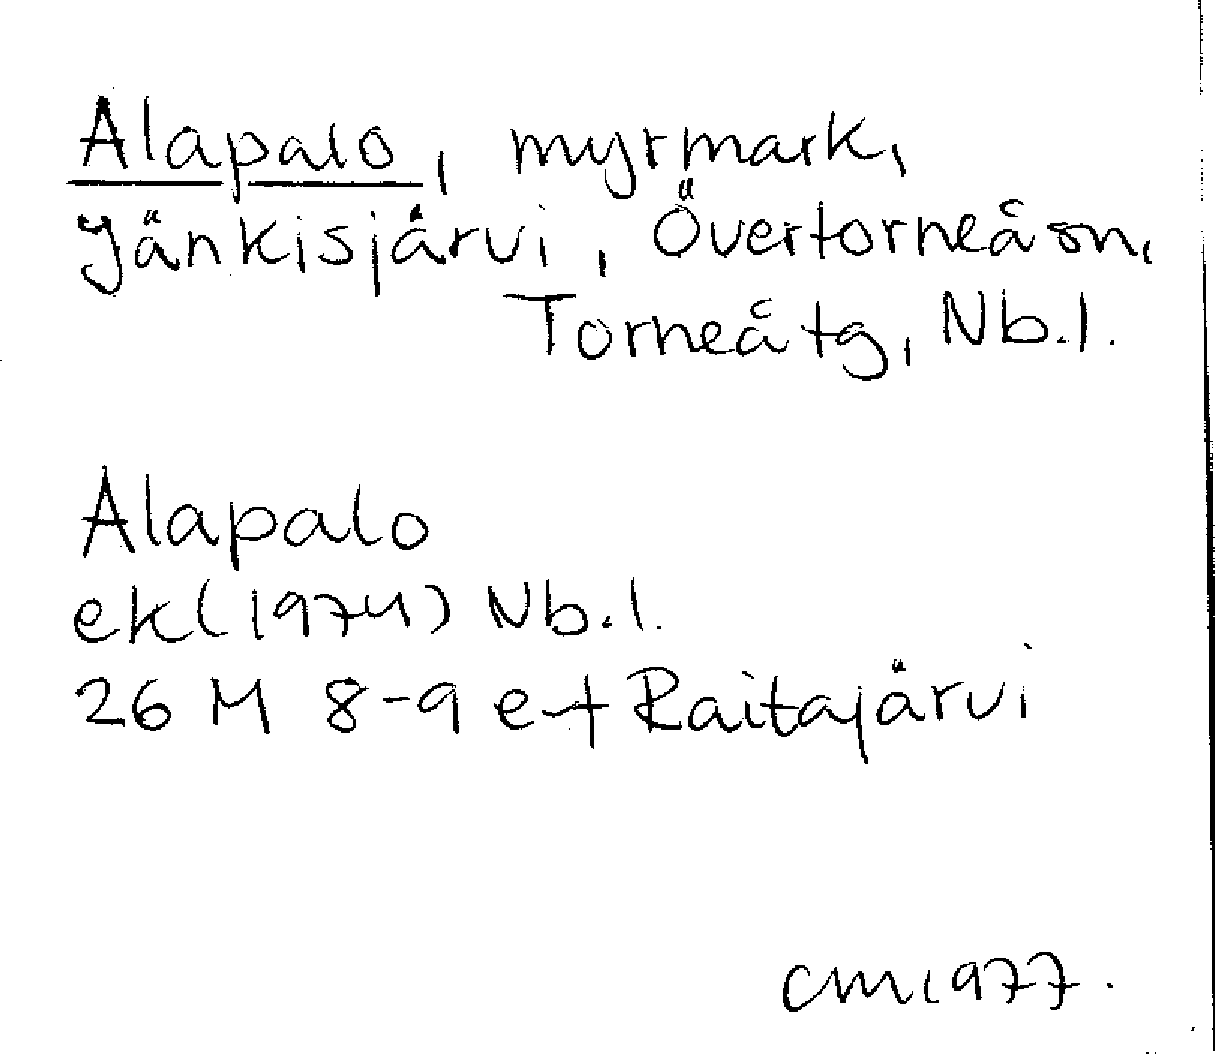 Alapalo, myrmark,
Jänkisjärvi, Övertorneå sn,
Torneå tg, Nb.l.
Alapalo
ek (1974) Nb.l.
26 M 8-9 e-f Raitajärvi
CM 1977.